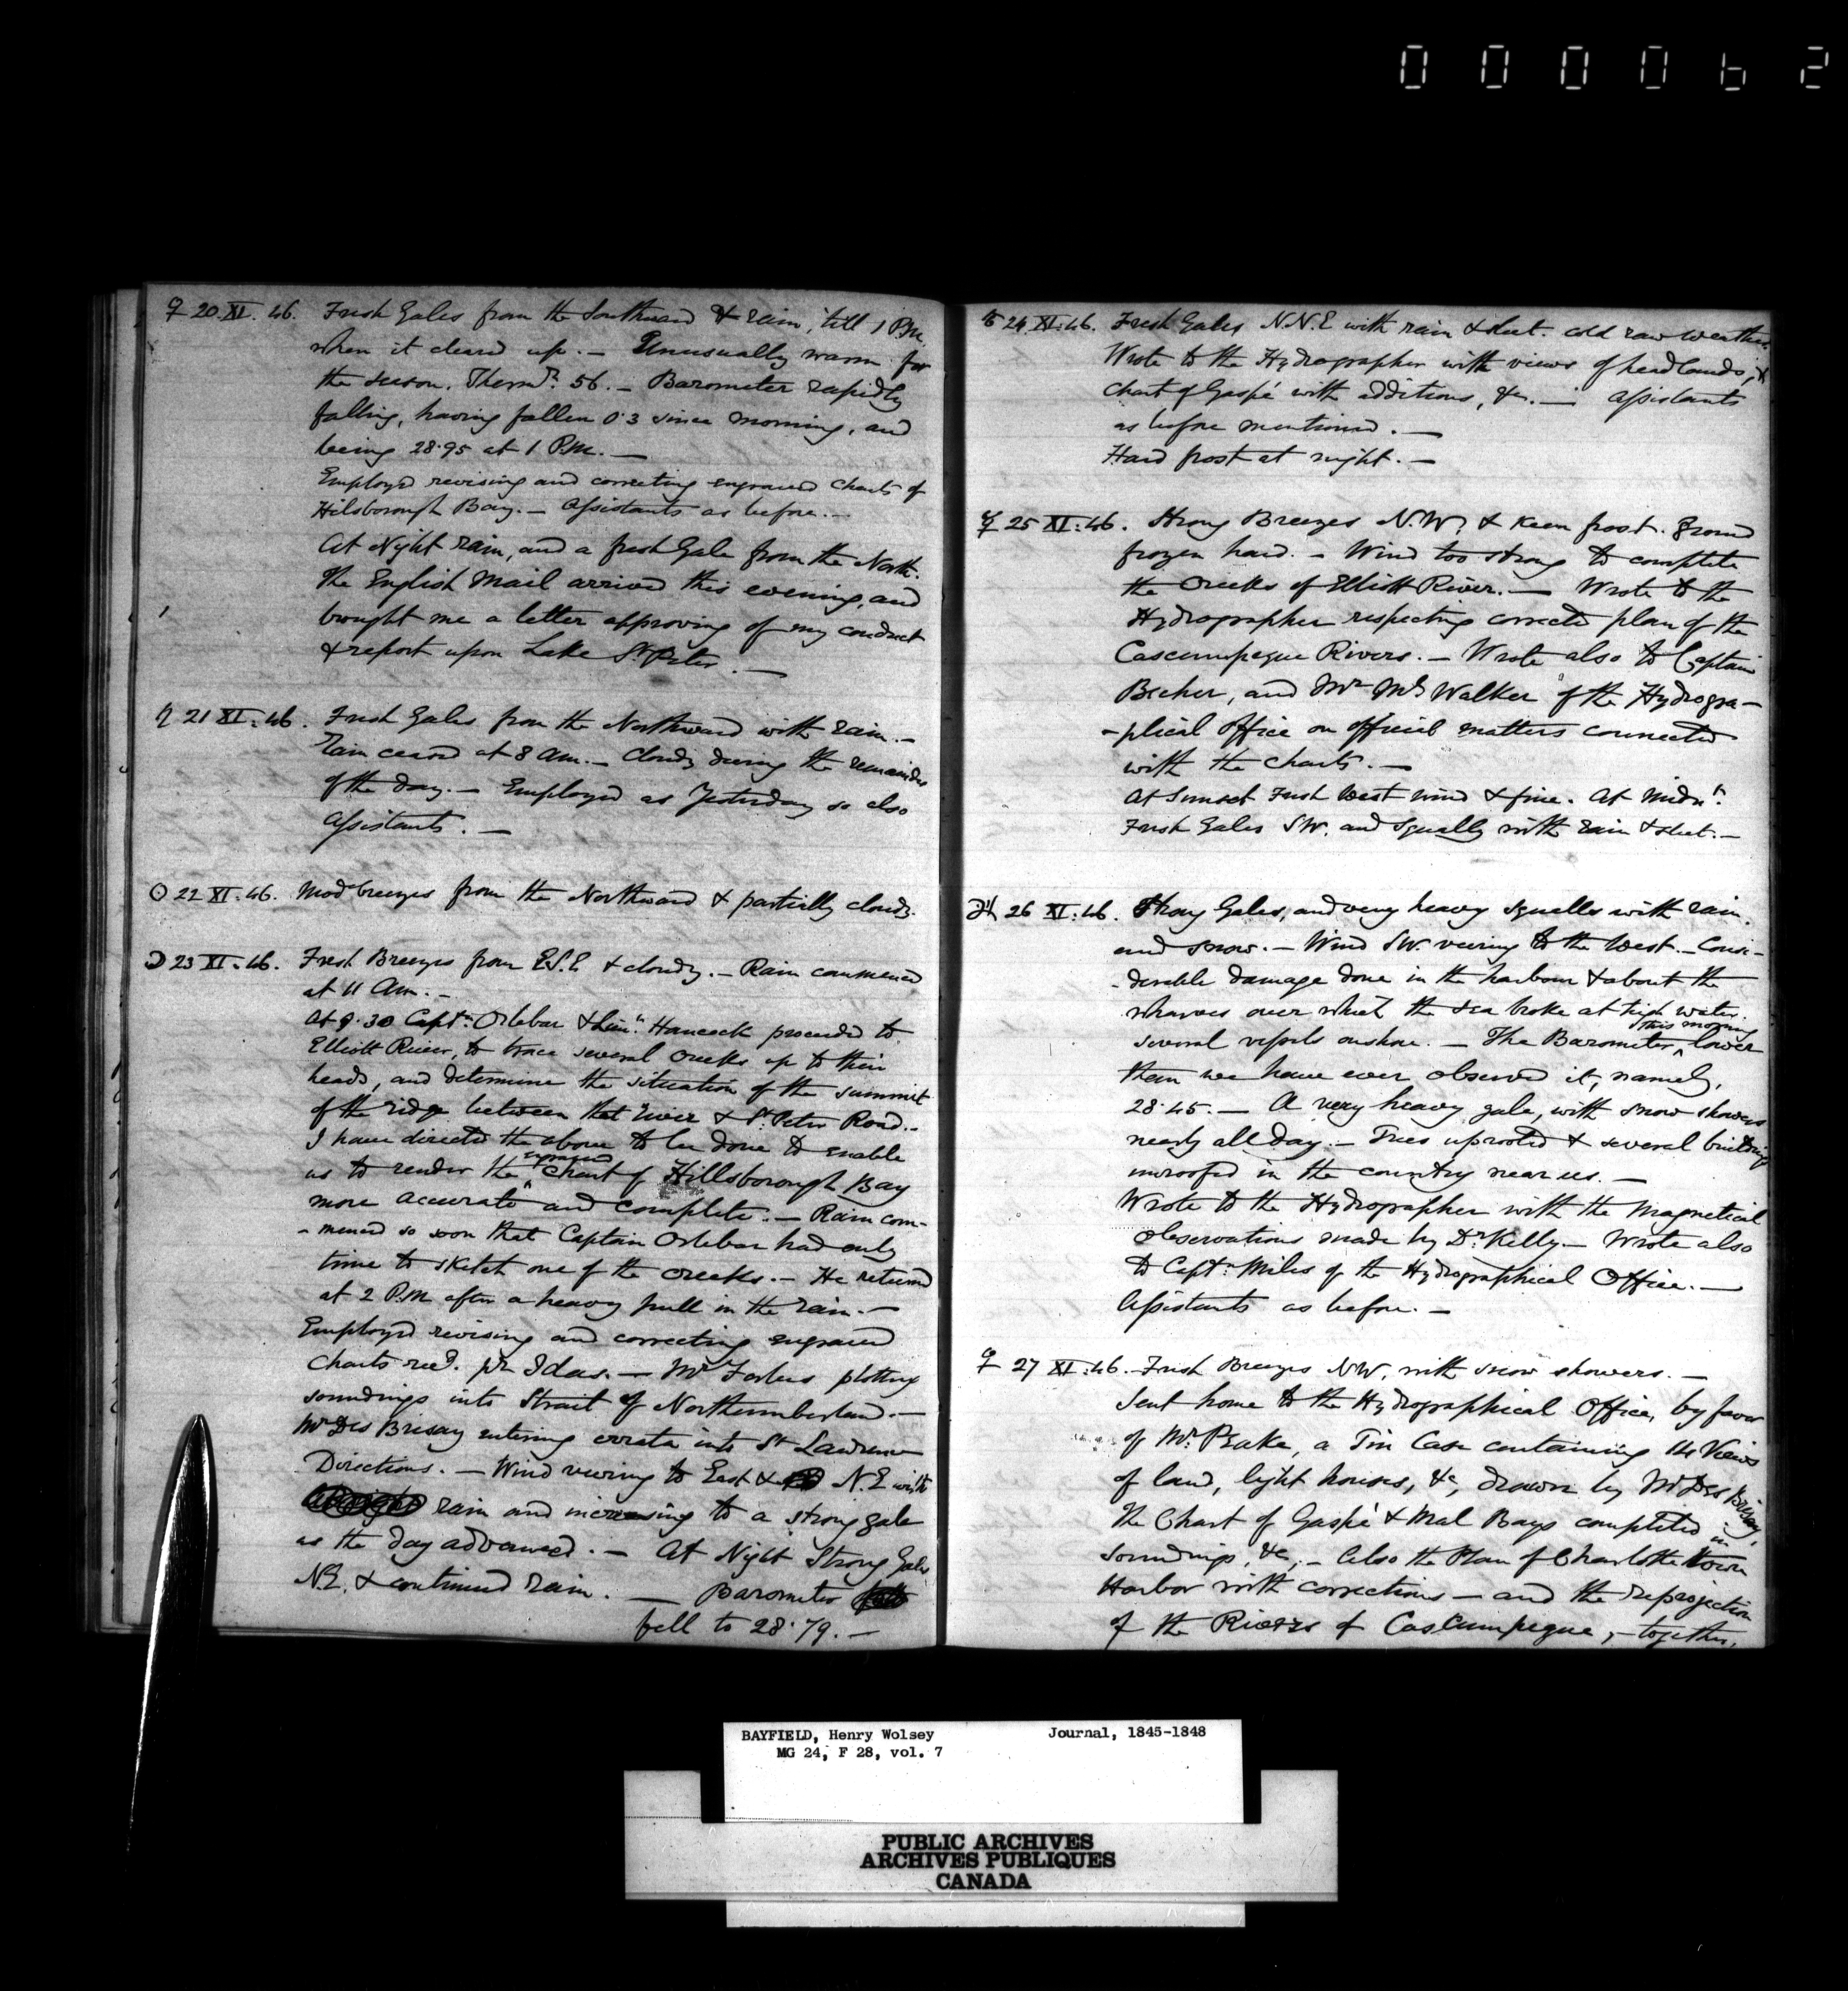 0 0 0 0 6 2
♀ 20. XI. 46. Fresh Gales from the Southward & rain, till 1 P.M.
when it cleared up. — Unusually warm for
the season. Thermr. 56. — Barometer rapidly
falling, having fallen 0.3 since morning, and
being 28.95 at 1 P.M. —
Employed revising and correcting engraved Charts of
Hilsborough Bay. — Assistants as before. —
At Night rain, and a fresh Gale from the North.
The English Mail arrived this evening, and
brought me a letter approving of my conduct
& report upon Lake St. Peter. —
♄ 21 XI. 46. Fresh Gales from the Northward with rain. —
Rain ceased at 8 AM. — Cloudy during the remainder
of the day. — Employed as Yesterday so also
Assistants. —
☉ 22 XI. 46. Mod breezes from the Northward & partially cloudy.
☽ 23 XI. 46. Fresh Breezes from E.S.E & cloudy. — Rain commenced
at 11 AM. —
At 9.30 Captn. Orlebar & Lieut. Hancock proceeded to
Elliott River, to trace several creeks up to their
heads, and determine the situation of the summit
of the ridge between that river & St. Peter Road. —
I have directed the above to be done to enable
us to render the engraved Chart of Hillsborough Bay
more accurate and complete. — Rain com-
-menced so soon that Captain Orlebar had only
time to sketch one of the creeks. — He returned
at 2 P.M after a heavy pull in the rain. —
Employed revising and correcting engraved
Charts recd. pr Idas. — Mr Forbes plotting
soundings into Strait of Northumberland. —
Mr Des Brisay entering errata into St Lawrence
Directions. — Wind veering to East & N.E with
rain and increasing to a strong gale
as the day advanced. — At Night Strong Gales
N.E. & continued rain. — Barometer
fell to 28.79. —
♂ 24 XI. 46. Fresh Gales N.N.E with rain & sleet. cold raw weather.
Wrote to the Hydrographer with views of headlands, &
Chart of Gaspé with additions, &c. — Assistants
as before mentioned. —
Hard frost at night. —
☿ 25 XI. 46. Strong Breezes N.W. & keen frost. Ground
frozen hard. — Wind too strong to complete
the Creeks of Elliott River. — Wrote to the
Hydrographer respecting corrected plan of the
Cascumpeque Rivers. — Wrote also to Captain
Becher, and Mr Ml Walker of the Hydrogra-
-phical Office on official matters connected
with the Charts. —
At Sunset Fresh West wind & fine. At Midnt.
Fresh Gales SW. and Squally with rain & sleet. —
♃ 26 XI. 46. Strong Gales, and very heavy squalls with rain.
and snow. — Wind SW. veering to the West. — Consi-
-derable damage done in the harbour & about the
wharves over which the sea broke at high water.
this morning
several vessels onshore. — The Barometer ^ lower
than we have ever observed it, namely,
28.45. — A very heavy gale, with snow showers
nearly all day. — Trees uprooted & several buildings
unroofed in the country near us. —
Wrote to the Hydrographer with the Magnetical
Observations made by Dr. Kelly. — Wrote also
to Captn. Miles of the Hydrographical Office. —
Assistants as before. —
♀ 27 XI. 46. Fresh Breezes NW, with snow showers. —
Sent home to the Hydrographical Office, by favor
of Mr. Peake, a Tin Case containing 14 Views
of land, light houses, &c, drawn by Mr Des Brisay,
The Chart of Gaspé & Mal Bays completed in
soundings, &c, — Also the Plan of Charlotte town
Harbor with corrections — and the reprojection
of the Rivers of Cascumpeque, — together,
BAYFIELD, Henry Wolsey Journal, 1845-1848
MG 24, F 28, vol. 7
PUBLIC ARCHIVES
ARCHIVES PUBLIQUES
CANADA